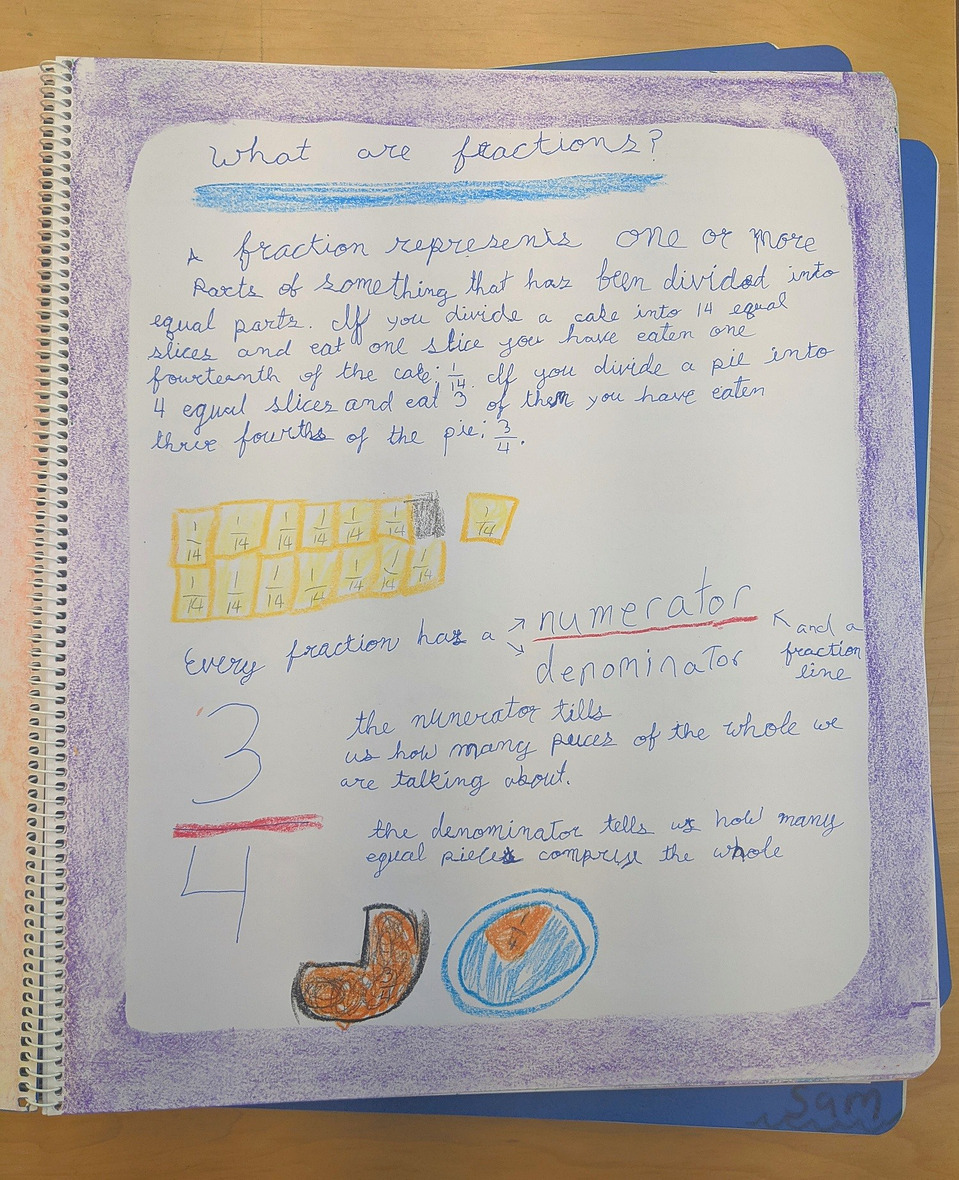 What are fractions?
A fraction represents one or more
Parts of something that has been divided into
equal parts. If you divide a cake into 14 equal
slices and eat one slice you have eaten one
fourteenth of the cake: 1/14. If you divide a pie into
4 equal slices and eat 3 of them you have eaten
three fourths of the pie: 3/4.
1/14 1/14 1/14 1/14 1/14 1/14 1/14
1/14 1/14 1/14 1/14 1/14 1/14 1/14
Every fraction has a numerator and a
denominator fraction
line
3
the nunerator tills
us how many pieces of the whole we
are talking about.
4
the denominator tells us how many
equal pieces comprise the whole
3/4 1/4
Sam